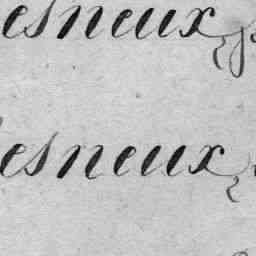 esneux
esneux